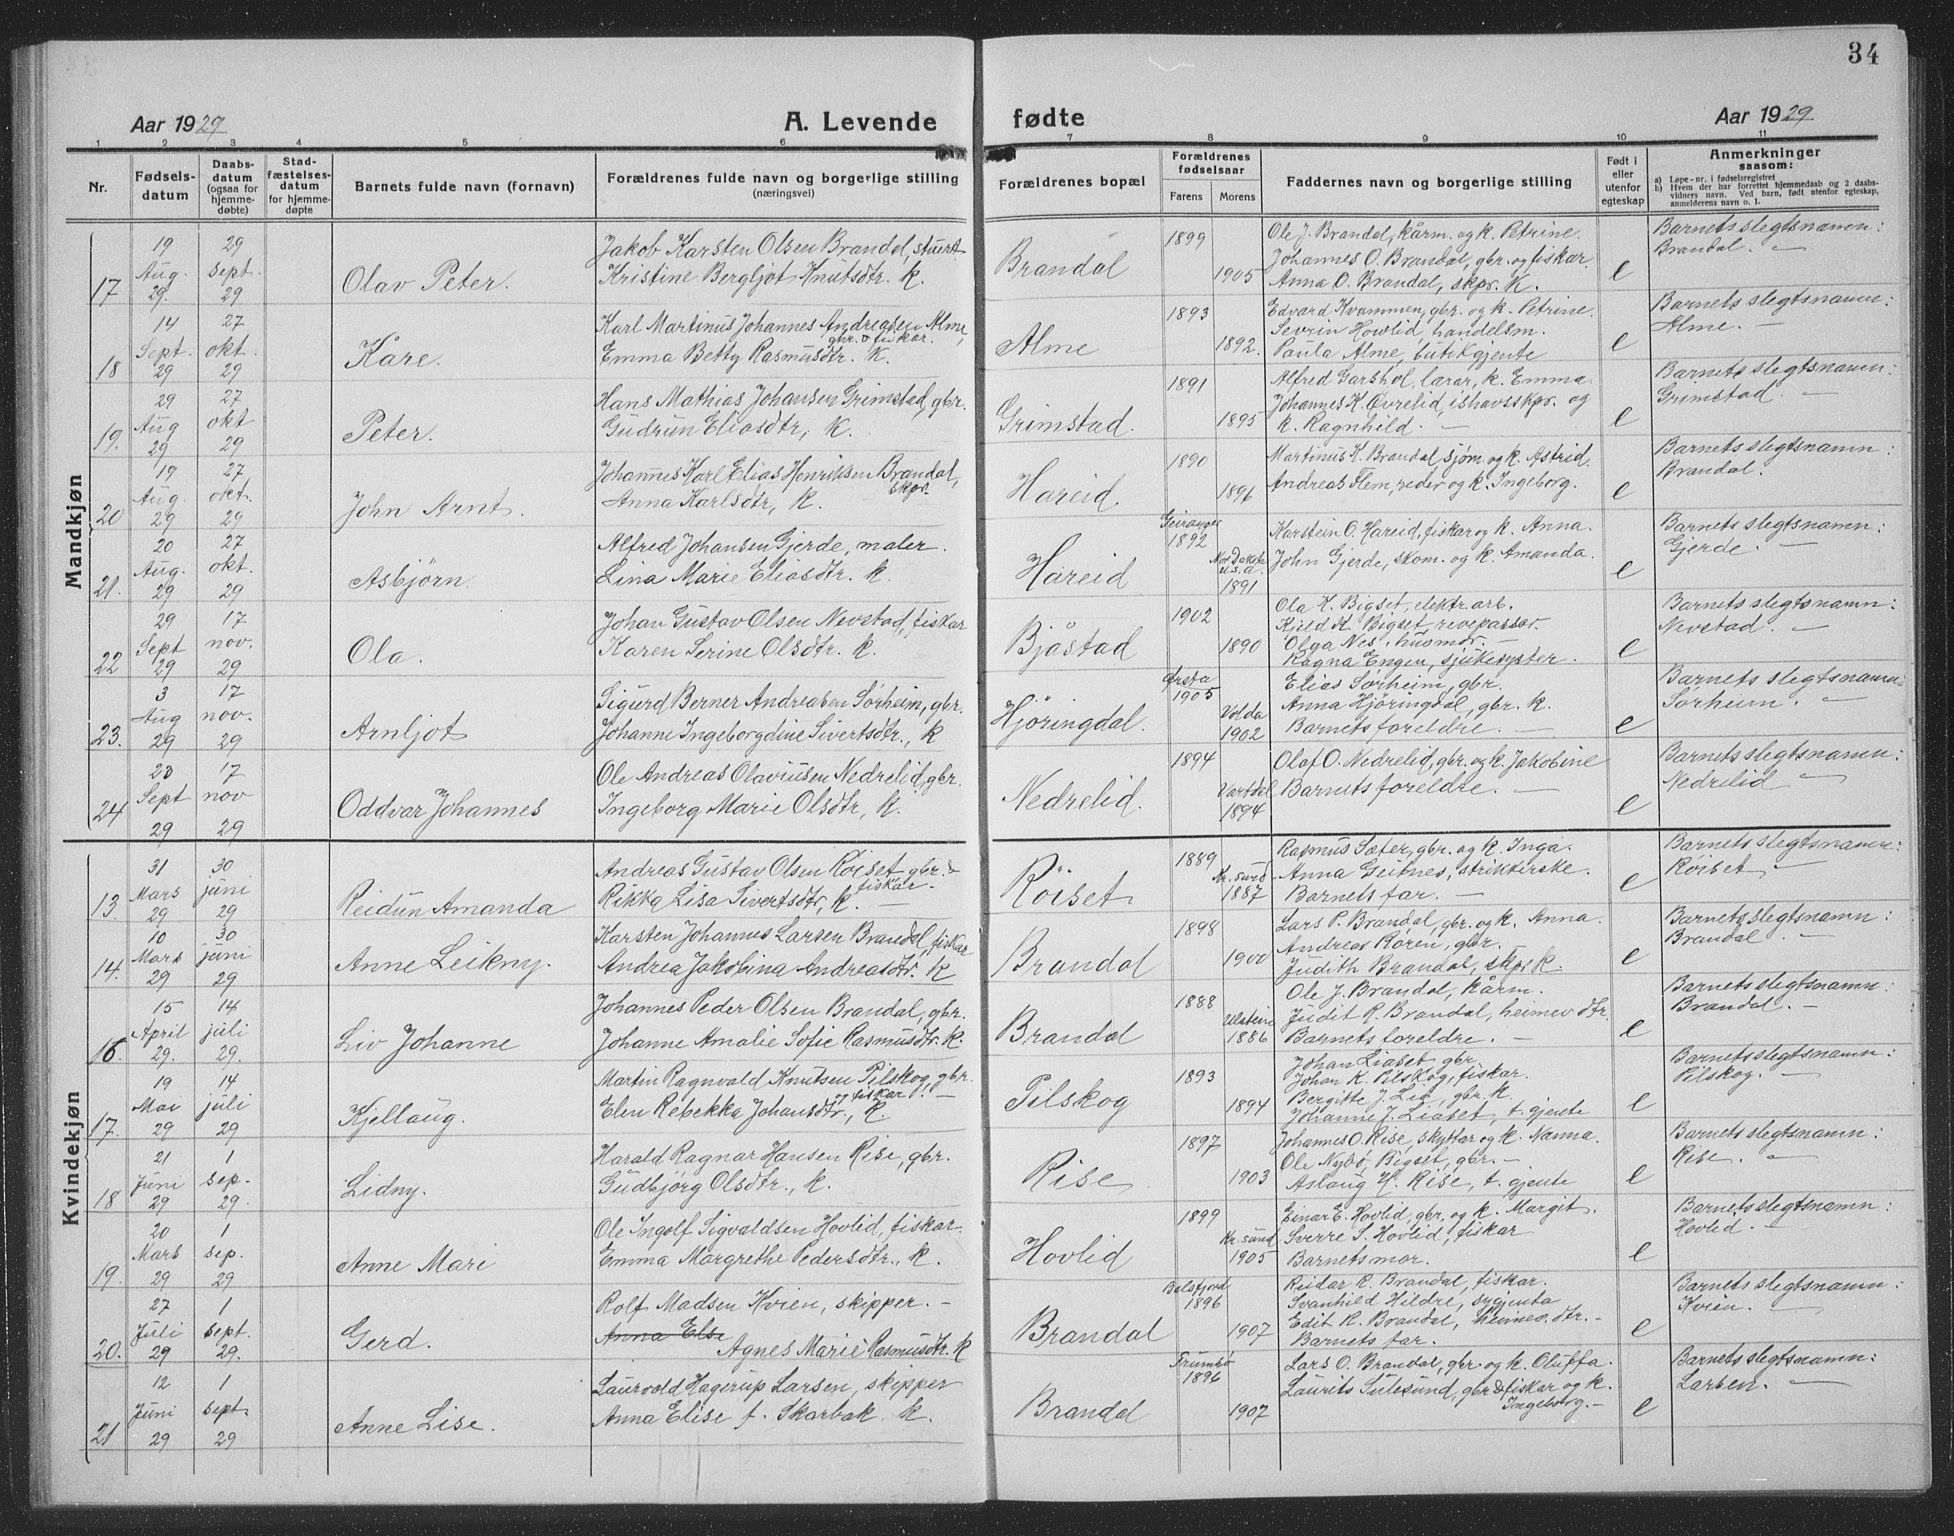 34
Aar 1929
A. Levende
fødte
Aar 1929
1 2 3 4 5 6 7 8 9 10 11
Nr.
Fødsels-
datum
Daabs-
datum
(ogsaa for
hjemme-
døbte)
Stad-
fæstelses-
datum
for hjemme-
døpte
Barnets fulde navn (fornavn)
Forældrenes fulde navn og borgerlige stilling
(næringsvei)
Forældrenes bopæl
Forældrenes
fødselsaar
Farens Morens
Faddernes navn og borgerlige stilling
Født i
eller
utenfor
egteskap
Anmerkninger
saasom:
a) Løpe-nr. i fødselsregistret
b) Hvem der har forrettet hjemmedaab og 2 daabs-
vidners navn. Ved barn, født utenfor egteskap,
anmelderens navn o. l.
Mandkjøn
17 19 Aug. 29. 29 sept. 29 Olav Peter.
Jakob Karsten Olsen Brandal, stuert
Kristine Bergljot Knutsdtr. k.
Brandal 1899 1905
Ole J. Brandal, kårm. og k. Petrine.
Johannes O. Brandal, gbr. og fiskar.
Anna O. Brandal, skpr. k.
e
Barnets slegtsnamn:
Brandal. —
18 14 Sept. 29 27 okt. 29 Kåre.
Karl Martinus Johannes Andreasen Alme,
gbr. o fiskar.
Emma Betty Rasmusdtr. k.
Alme 1893 1892.
Edvard Kvammen, gbr. og k. Petrine.
Sevrin Hovlid, handelsm.
Paula Alme, butikgjente
e
Barnets slegtsnamn:
Alme. —
19. 29 Aug 29 27 okt 29 Peter.
Hans Mathias Johansen Grimstad, gbr.
Gudrun Eliasdtr, k.
Grimstad. 1891 1895
Alfred Garshol, lærar, k. Emma.
Johannes K. Øvrelid, ishavsskpr. og
k. Ragnhild. —
e
Barnets slegtsnamn:
Grimstad. —
20 19 Aug. 29 27 okt. 29 John Arnt.
Johannes Karl Elias Henriksen Brandal,
skpr.
Anna Karlsdtr, k.
Hareid. 1890 1896
Martinus K. Brandal, sjøm. og k. Astrid.
Andreas Flem, reder og k. Ingeborg.
e
Barnets slegtsnamn:
Brandal.
21. 20 Aug. 29 27 okt. 29 Asbjörn.
Alfred Johansen Gjerde, maler.
Lina Marie Eliasdtr. k.
Hareid Geiranger 1892 Nor Dakota U.S.A. 1891
Karstein O. Hareid, fiskar og k. Anna.
John Gjerde, skom. og k. Amanda.
e
Barnets slegtsnamn:
Gjerde. —
22 29 Sept 29 17 nov. 29 Ola.
Johan Gustav Olsen Nevstad, fiskar
Karen Serine Olsdtr. k.
Bjåstad 1902 1890
Ola K. Bigset, elektr. arb.
Kild K. Bigset, revepassar.
Olga Nes, husmdr. —
Ragna Engen, sjukesyster.
e
Barnets slegtsnamn:
Nevstad. —
23. 3 Aug 29 17 nov. 29 Arnljot
Sigurd Berner Andreasen Sørheim, gbr.
Johanne Ingeborgdine Sivertsdtr., k
Hjøringdal. Ørsta 1905 Volda 1902
Elias Sørheim, gbr.
Anna Hjøringdal, gbr. k.
Barnets foreldre. —
e
Barnets slegtsnamn:
Sørheim. —
24 23 Sept 29 17 nov 29 Oddvar Johannes
Ole Andreas Olaviusen Nedrelid, gbr.
Ingeborg Marie Olsdtr, k.
Nedrelid. 1894 Vartdal 1894
Olaf O. Nedrelid, gbr. og k. Jakobine
Barnets foreldre. —
e
Barnets slegtsnamn:
Nedrelid —
Kvindekjøn
13. 31 Mars 29 30 juni 29 Reidun Amanda
Andreas Gustav Olsen Røiset gbr. &
fiskar.
Rikka Lisa Sivertsdtr, k. —
Röiset 1889 Kr.sund 1887
Rasmus Sæter, gbr. og k. Inga.
Anna Geitnes, strikkerske.
Barnets far. —
e
Barnets slegtsnamn:
Røiset —
14. 10 Mars 29 30 juni 29 Anne Leikny.
Karsten Johannes Larsen Brandal, fiskar
Andrea Jakobina Andreasdtr. k
Brandal 1898 1900
Lars P. Brandal, gbr. og k. Anna.
Andreas Røren, gbr.
Judith Brandal, skpr k.
e
Barnets slegtsnamn:
Brandal. —
16. 15 April 29. 14 juli 29. Liv Johanne
Johannes Peder Olsen Brandal, gbr.
Johanne Amalie Sofie Rasmusdtr. k.
Brandal 1888 Ulstein 1886
Ole J. Brandal, kårm.
Judit R. Brandal, heimev. dtr.
Barnets foreldre. —
e
Barnets slegtsnamn:
Brandal. —
17. 19 Mai 29 14 juli 29 Kjellaug.
Martin Ragnvald Knutsen Pilskog, gbr.
og fiskar. —
Elen Rebekka Johansdtr., k.
Pilskog 1893 1894
Johan Liaset gbr.
Johan K. Pilskog, fiskar.
Bergitte J. Lid, gbr. k
Johanne J. Liaset, t. gjente
e
Barnets slegtsnamn:
Pilskog. —
18 21 Juni 29 1 sep. 29. Lidny.
Harald Ragnar Hansen Rise, gbr.
Gudbjörg Olsdtr., k.
Rise 1897 1903
Johannes O. Rise, skyttar og k. Nanna.
Ole Nybø, Bigset, gbr. —
Aslaug H. Rise, t. gjente
e
Barnets slegtsnamn:
Rise. —
19. 20 Mars 29 1 sep. 29 Anne Mari
Ole Ingolf Sigvaldsen Hovlid, fiskar
Emma Margrethe Pedersdtr., k.
Hovlid 1899 Kr.sund 1905
Einar E. Hovlid, gbr. og k. Margit.
Sverre S. Hovlid, fiskar
Barnets mor.
e
Barnets slegtsnamn:
Hovlid. —
20. 27 Juli 29 1 sept. 29. Gerd.
Rolf Madsen Kvien, skipper. —
Anna Else
Agnes Marie Rasmusdtr. k
Brandal Balsfjord 1896 1907
Reidar R. Brandal, fiskar.
Svanhild Hildre, sygjenta
Edit R. Brandal, heimev. dtr. —
Barnets far.
e
Barnets slegtsnamn:
Kvien. —
21 12 Juni 29 1 sept. 29 Anne Lise.
Laurvald Hagerup Larsen, skipper
Anna Elise f. Skarbak, k.
Brandal Trumsø 1896 1907
Lars O. Brandal, gbr. og k. Oluffa.
Laurits Sulesund, gbr & fiskar og k.
Ingeborg. —
e
Barnets slegtsnamn:
Larsen. —